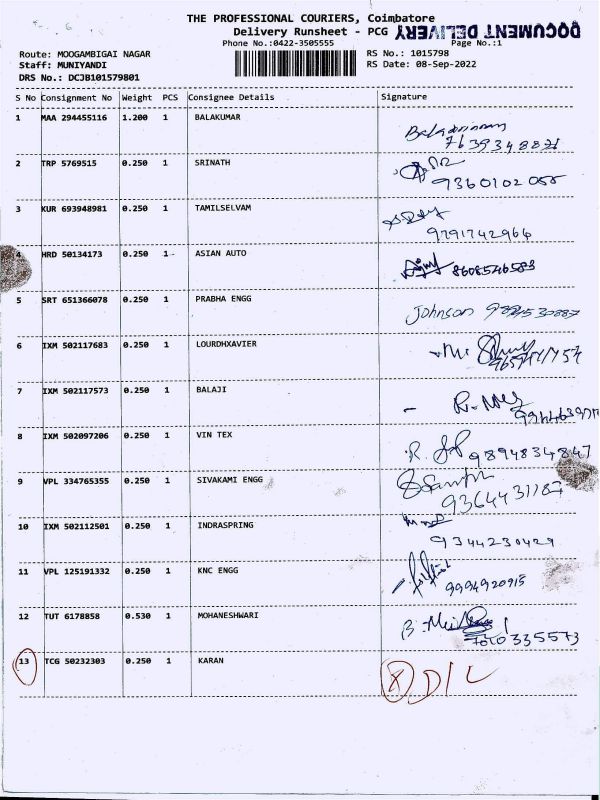 THE PROFESSIONAL COURIERS, Coimbatore
Delivery Runsheet - PCG
DOCUMENT DELIVERY
Phone No.:0422-3505555
Page No.:1
Route: MOOGAMBIGAI NAGAR
RS No.: 1015798
Staff: MUNIYANDI
RS Date: 08-Sep-2022
DRS No.: DCJB101579801
S No Consignment No Weight PCS Consignee Details Signature
1 MAA 294455116 1.200 1 BALAKUMAR
2 TRP 5769515 0.250 1 SRINATH
9360102055
3 KUR 693948981 0.250 1 TAMILSELVAM
9791742964
4 HRD 50134173 0.250 1 ASIAN AUTO
8608546583
5 SRT 651366078 0.250 1 PRABHA ENGG
Johnson
6 IXM 502117683 0.250 1 LOURDHXAVIER
7 IXM 502117573 0.250 1 BALAJI
8 IXM 502097206 0.250 1 VIN TEX
9894834847
9 VPL 334765355 0.250 1 SIVAKAMI ENGG
9364431187
10 IXM 502112501 0.250 1 INDRASPRING
9344230429
11 VPL 125191332 0.250 1 KNC ENGG
9994920915
12 TUT 6178858 0.530 1 MOHANESHWARI
13 TCG 50232303 0.250 1 KARAN
X D/L